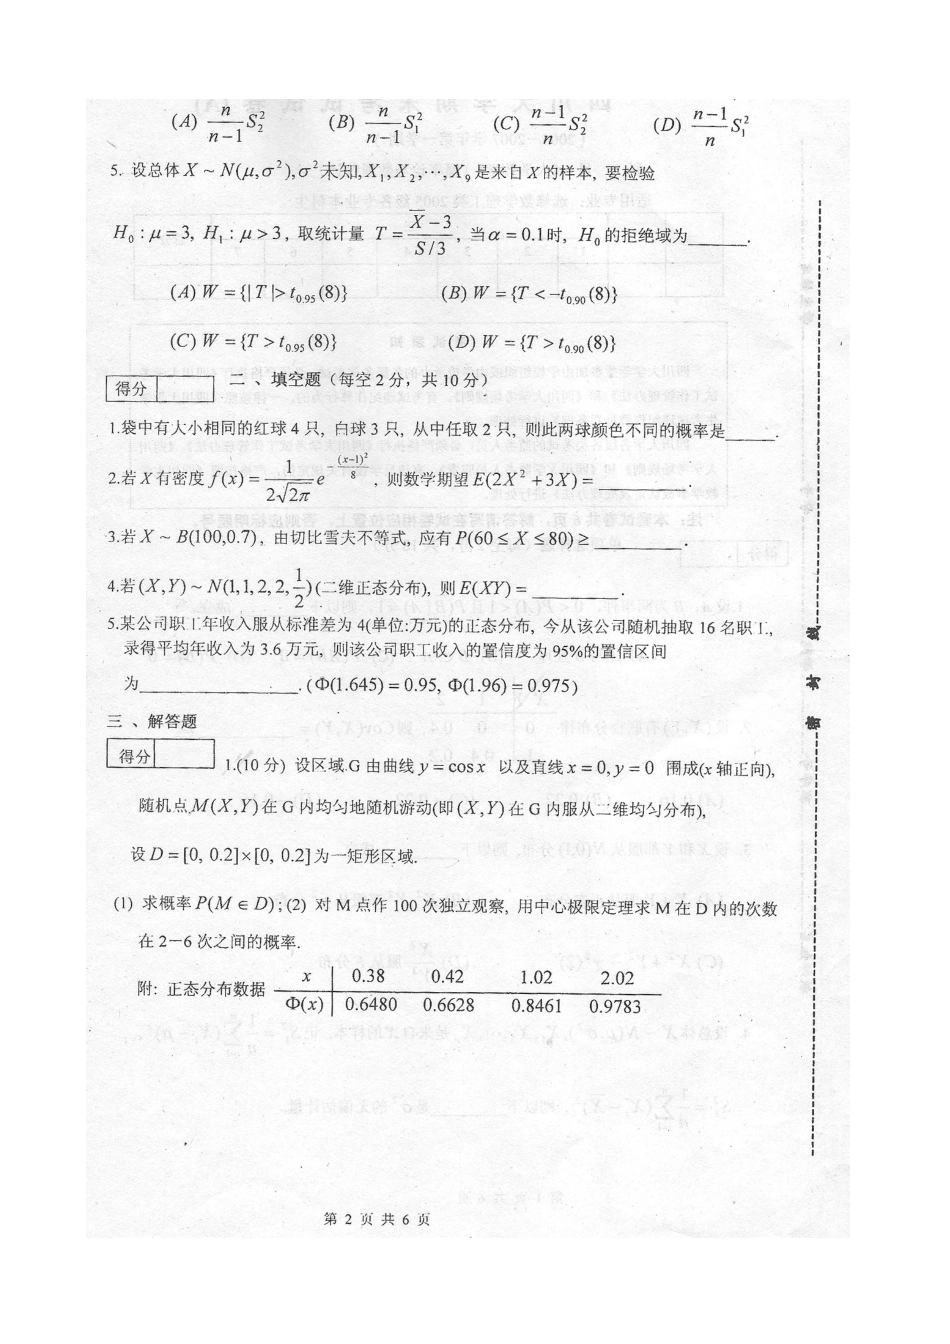 (A) n/(n-1) S₂²  (B) n/(n-1) S₁²  (C) (n-1)/n S₂²  (D) (n-1)/n S₁²
5. 设总体 X ~ N(μ,σ²),σ²未知,X₁,X₂,⋯,X₉是来自X的样本, 要检验
H₀:μ=3, H₁:μ>3, 取统计量 T = (X̄-3)/(S/3), 当α=0.1时, H₀的拒绝域为______.
(A) W={|T|>t₀.₉₅(8)}  (B) W={T<-t₀.₉₀(8)}
(C) W={T>t₀.₉₅(8)}  (D) W={T>t₀.₉₀(8)}
得分  二、填空题（每空2分，共10分）
1.袋中有大小相同的红球4只, 白球3只, 从中任取2只, 则此两球颜色不同的概率是_____.
2.若X有密度 f(x)= 1/(2√2π) e^((x-1)²/8), 则数学期望E(2X²+3X)=________.
3.若X ~ B(100,0.7), 由切比雪夫不等式, 应有P(60≤X≤80)≥________.
4.若(X,Y) ~ N(1,1,2,2,1/2)(二维正态分布), 则E(XY)=________.
5.某公司职工年收入服从标准差为4(单位:万元)的正态分布, 今从该公司随机抽取16名职工,
录得平均年收入为3.6万元, 则该公司职工收入的置信度为95%的置信区间
为______________.(Φ(1.645)=0.95, Φ(1.96)=0.975)
三、解答题
得分  1.(10分) 设区域G由曲线y=cosx 以及直线x=0,y=0 围成(x轴正向),
随机点M(X,Y)在G内均匀地随机游动(即(X,Y)在G内服从二维均匀分布),
设D=[0, 0.2]×[0, 0.2]为一矩形区域.
(1) 求概率P(M∈D);(2) 对M点作100次独立观察, 用中心极限定理求M在D内的次数
在2-6次之间的概率.
附: 正态分布数据
x 0.38 0.42 1.02 2.02
Φ(x) 0.6480 0.6628 0.8461 0.9783
第 2 页 共 6 页
密 封 线